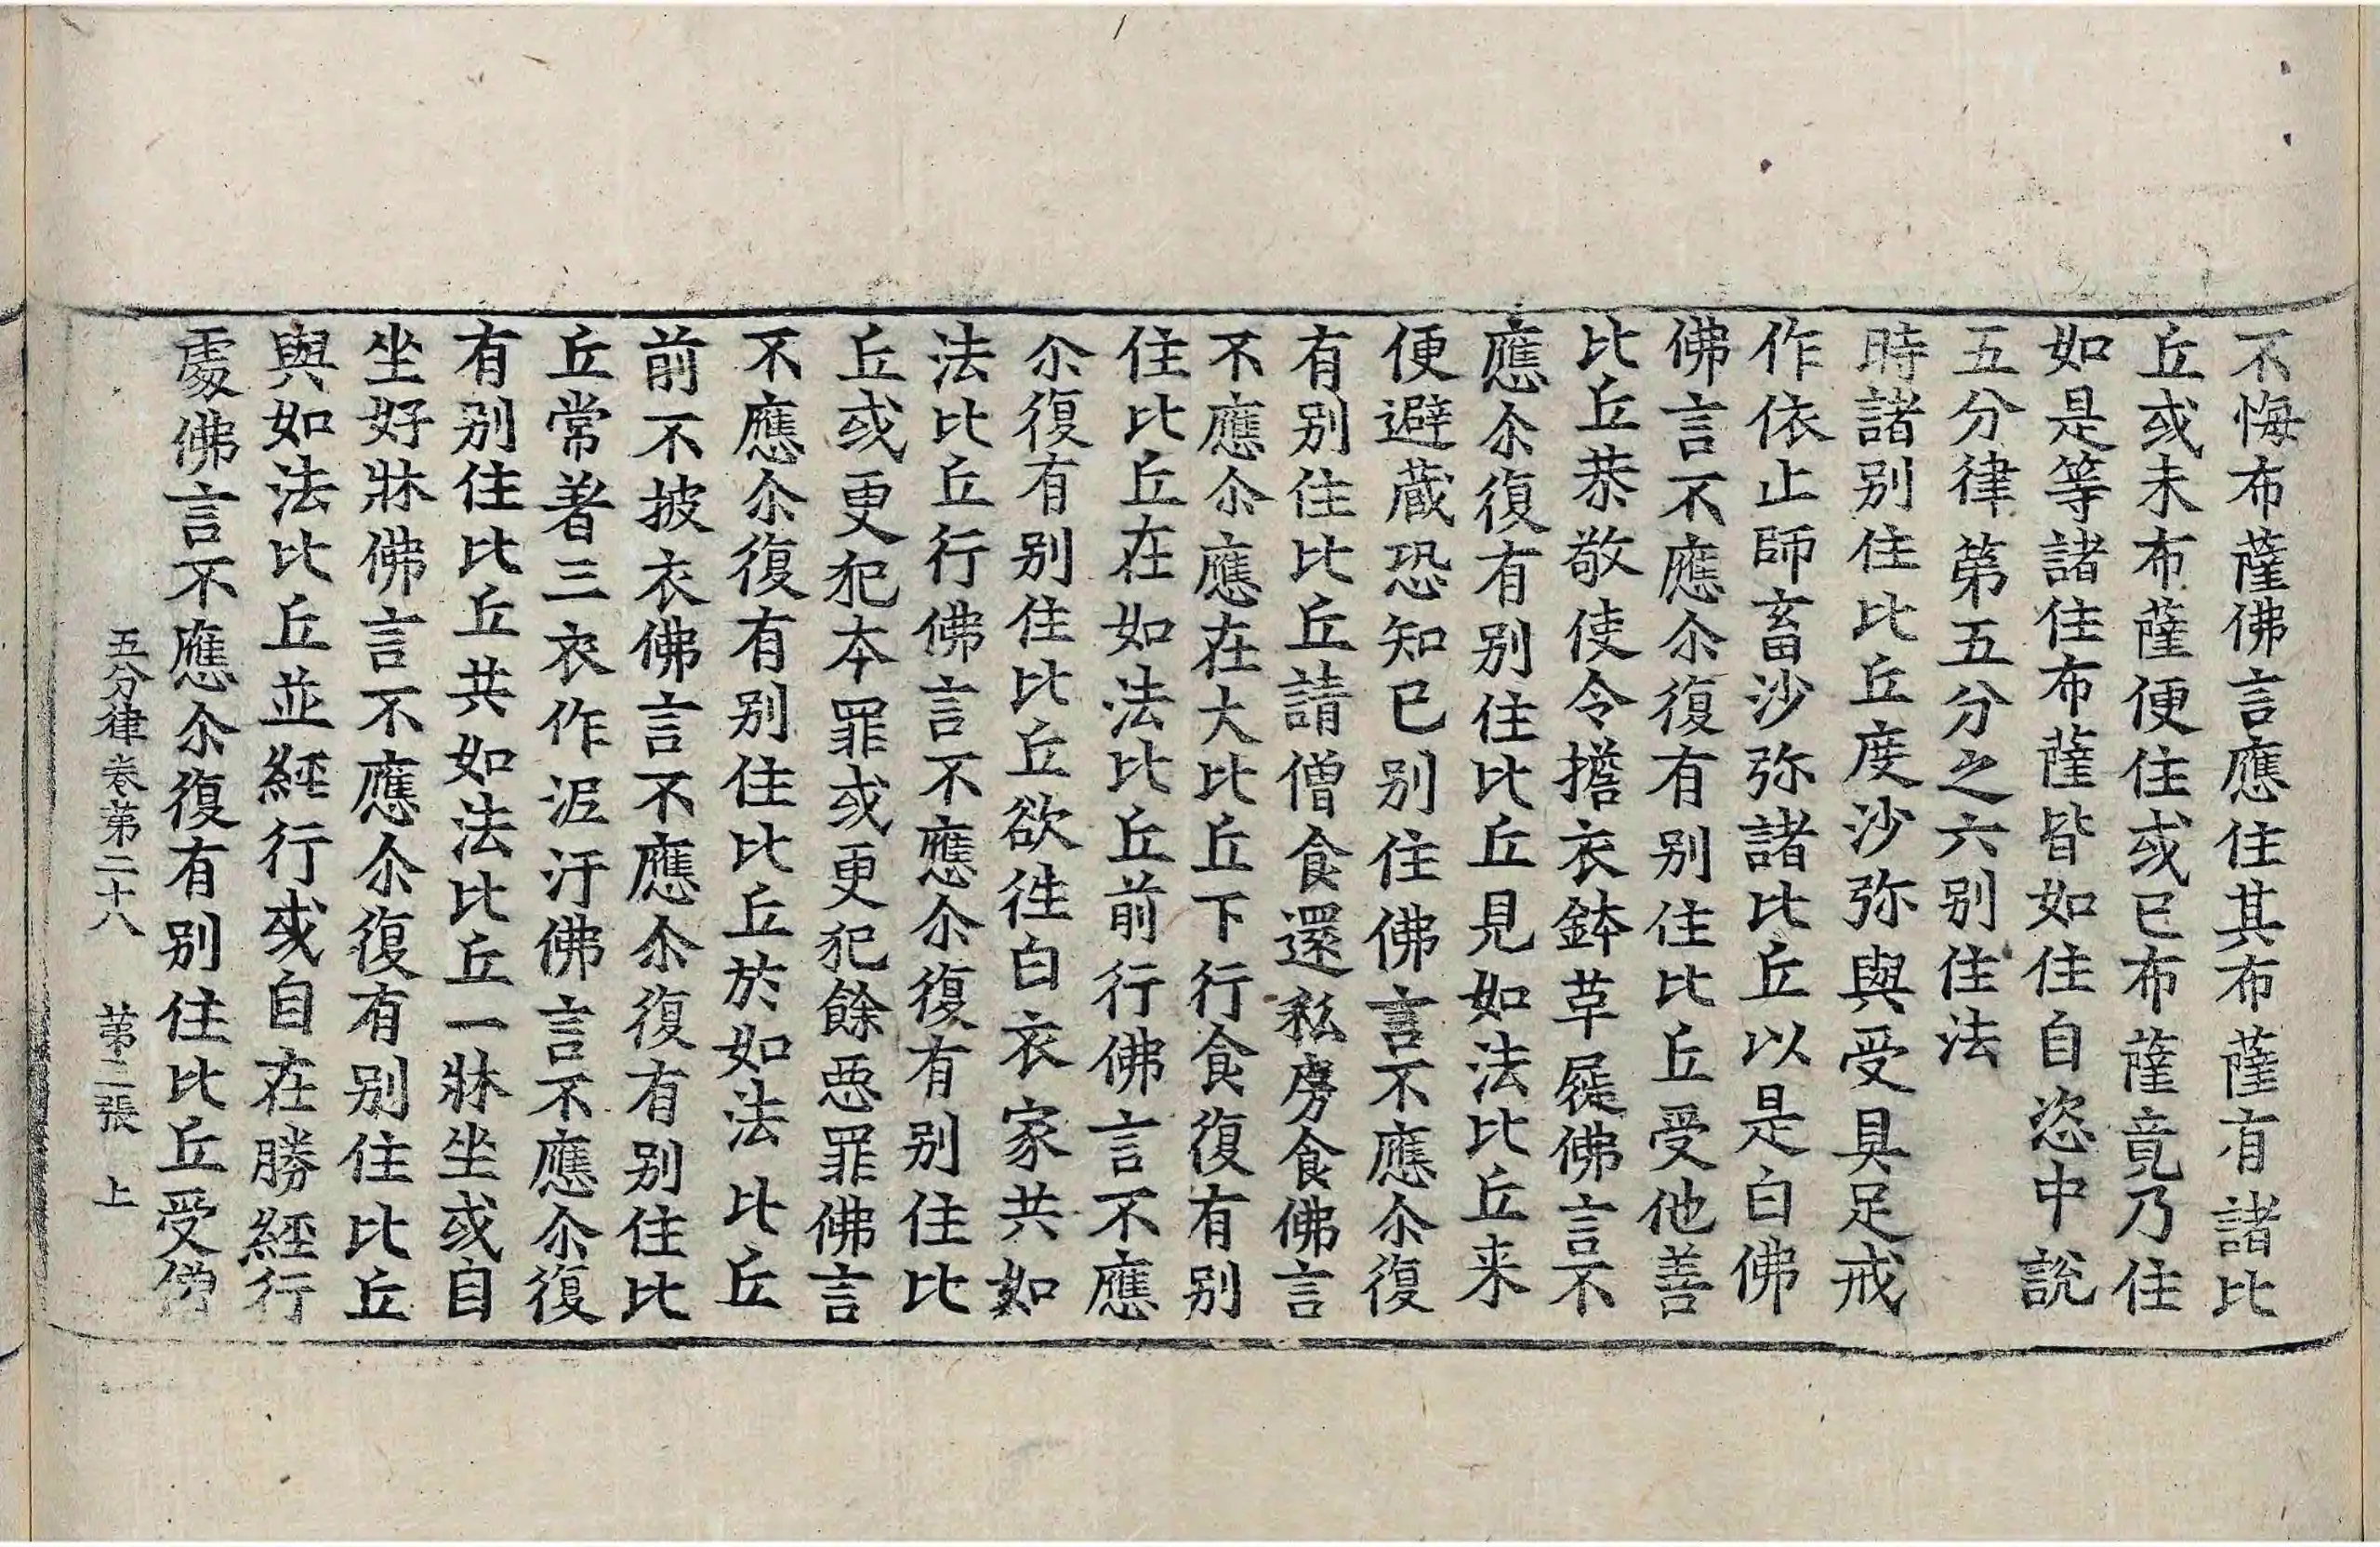 不悔布薩佛言應住其布薩有諸比
丘或未布薩便住或已布薩竟乃住
如是等諸住布薩皆如住自恣中說
五分律第五分之六别住法
時諸别住比丘度沙弥與受具足戒
作依止師畜沙弥諸比丘以是白佛
佛言不應尒復有别住比丘受他善
比丘恭敬使令擔衣鉢草屣佛言不
應尒復有别住比丘見如法比丘来
便避藏恐知已别住佛言不應尒復
有别住比丘請僧食還私房食佛言
不應尒應在大比丘下行食復有别
住比丘在如法比丘前行佛言不應
尒復有别住比丘欲徃白衣家共如
法比丘行佛言不應尒復有别住比
丘或更犯本罪或更犯餘惡罪佛言
不應尒復有别住比丘於如法比丘
前不披衣佛言不應尒復有别住比
丘常著三衣作泥汙佛言不應尒復
有别住比丘共如法比丘一牀坐或自
坐好牀佛言不應尒復有别住比丘
與如法比丘並經行或自在勝經行
處佛言不應尒復有别住比丘受僧
五分律卷第二十八　第二張　上